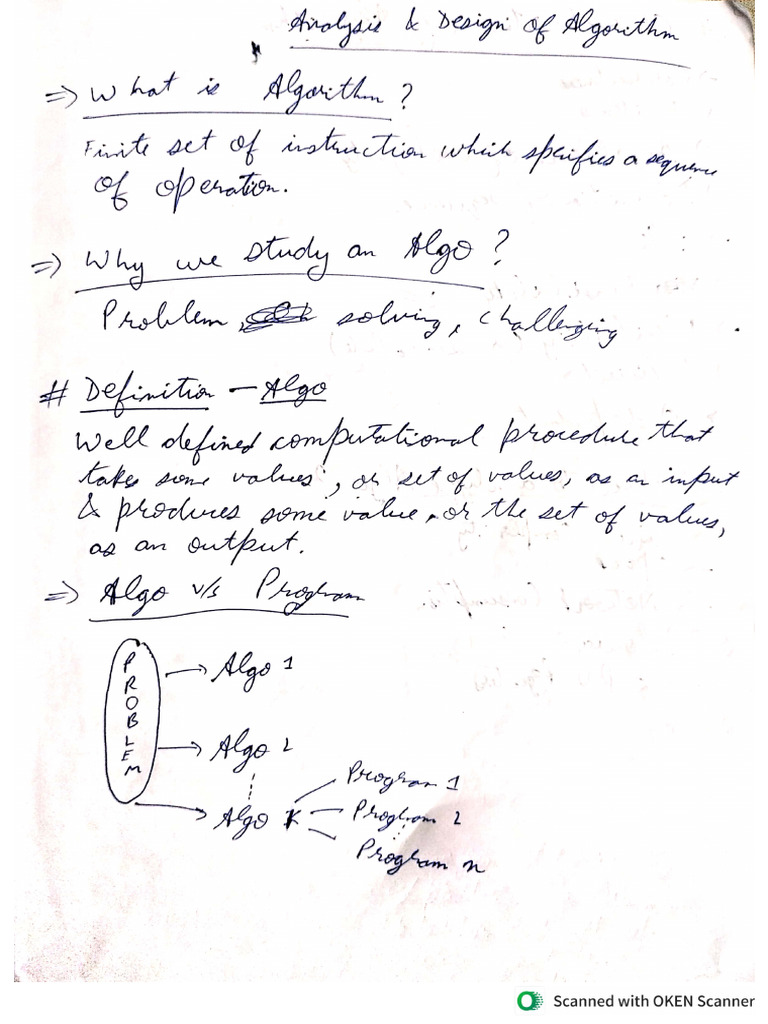 Analysis & Design of Algorithm
⇒ What is Algorithm?
Finite set of instruction which sperifies a sequence
of operation.
⇒ Why we study an Algo?
Problem solving, challenging
# Definition — Algo
Well defined computational procedure that
takes some values, or set of values, as an input
& produces some value, or the set of values,
as an output.
⇒ Algo v/s Program
PROBLEM
→ Algo 1
→ Algo 2
→ Algo K
Program 1
Program 2
Program n
Scanned with OKEN Scanner